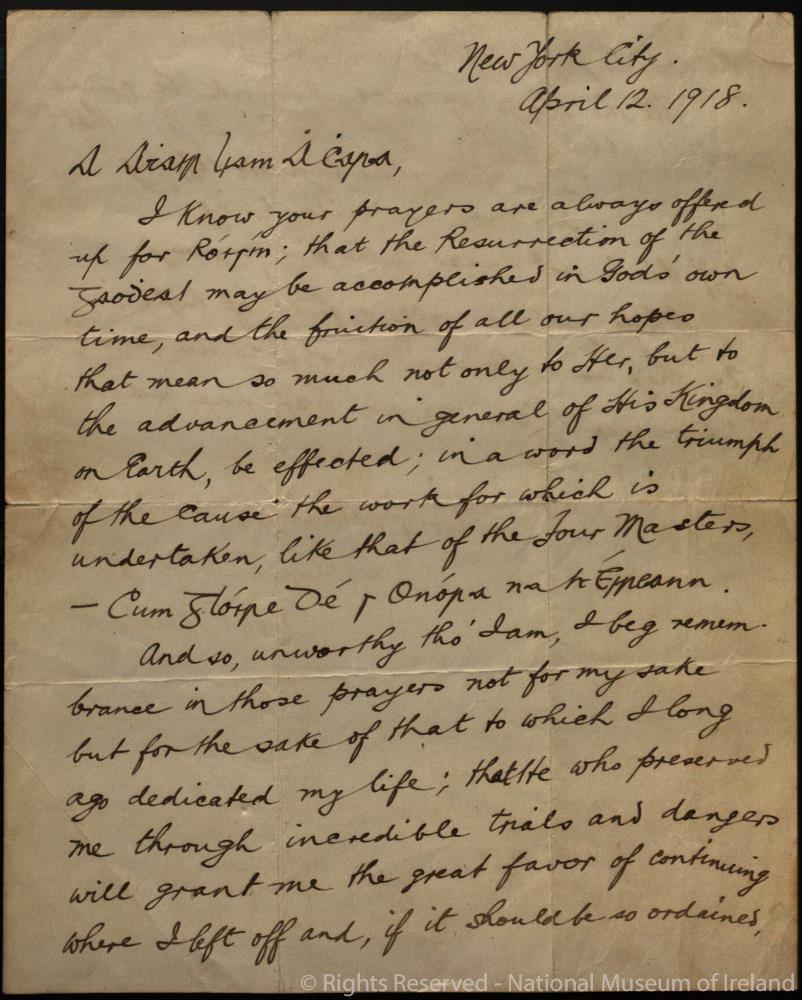 New York City.
April 12. 1918.
A Ċara,
I know your prayers are always offered
up for Róisín; that the Resurrection of the
Gaoḋeal may be accomplished in God's own
time, and the fruition of all our hopes
that mean so much not only to Her, but to
the advancement in general of His Kingdom
on Earth, be effected; in a word the triumph
of the Cause the work for which is
undertaken, like that of the Four Masters,
— Cum Glóire Dé ⁊ Onóra na h-Éireann.
And so, unworthy tho' I am, I beg remem-
brance in those prayers not for my sake
but for the sake of that to which I long
ago dedicated my life; that He who preserved
me through incredible trials and dangers
will grant me the great favor of continuing
where I left off and, if it should be so ordained,
© Rights Reserved - National Museum of Ireland